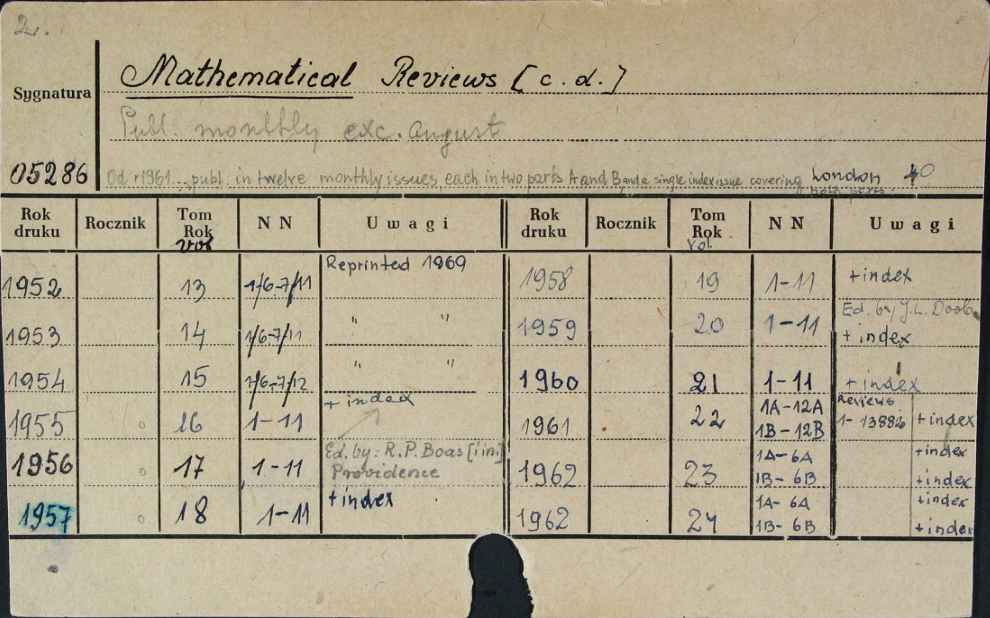 2.
Mathematical Reviews [c.d.]
Sygnatura
Publ. monthly exc. August
05286
Od r 1961 publ. in twelve monthly issues, each in two parts A and B and a single index issue covering both parts London
Rok druku Rocznik Tom Rok vol NN Uwagi Rok druku Rocznik Tom Rok Vol. NN Uwagi
1952 13 1/6-7/11 Reprinted 1969 1958 19 1-11 + index
1953 14 1/6-7/11 " " 1959 20 1-11 Ed. by J.L. Doob + index
1954 15 1/6-7/12 " " 1960 21 1-11 + index
1955 16 1-11 + index 1961 22 1A-12A 1B-12B Reviews 1-13882 + index
1956 17 1-11 Ed. by: R.P. Boas [i in.] Providence 1962 23 1A-6A 1B-6B + index + index
1957 18 1-11 + index 1962 24 1A-6A 1B-6B + index + index